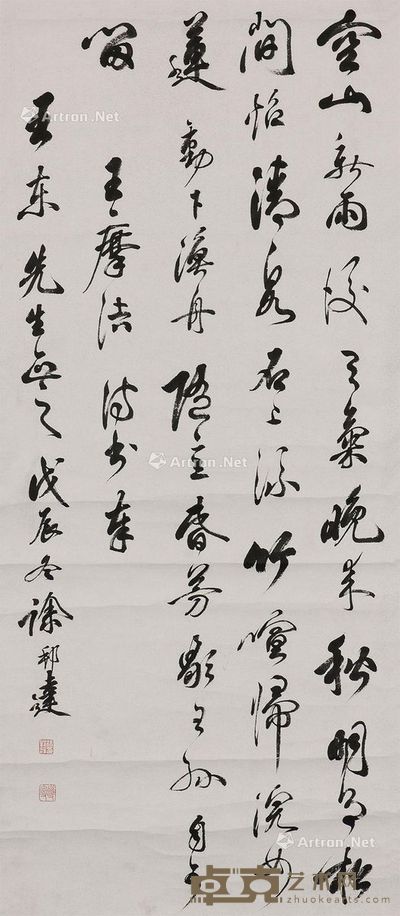 空山新雨後天氣晚来秋明月松
間照清泉石上流竹喧歸浣女
蓮動下漁舟随意春芳歇王孫自可
留 王摩詰詩書奉
東先生 戊辰冬徐邦達
Artron.Net
Artron.Net
Artron.Net
Artron.Net
Artron.Net
卓克艺术网
www.zhuokearts.com